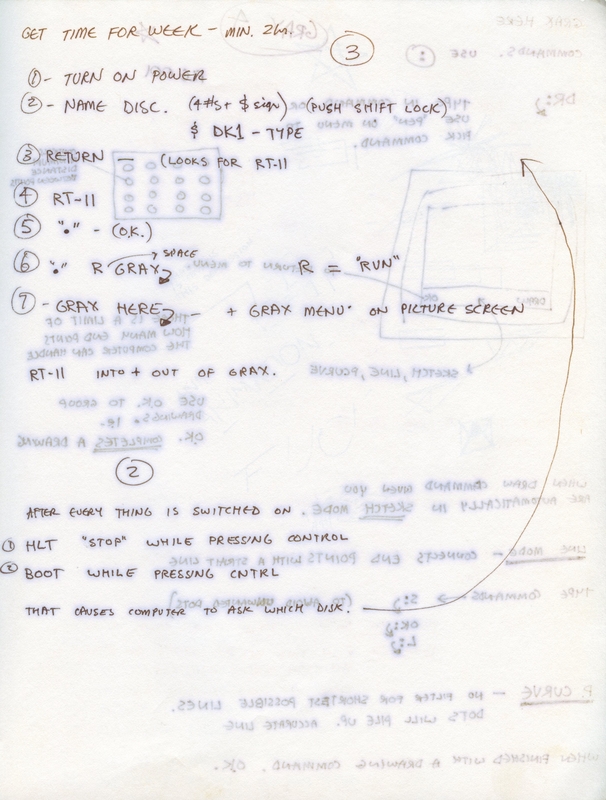 GET TIME FOR WEEK - MIN. 2 hr.
3
① - TURN ON POWER
② - NAME DISC. (4 #s + $ sign) (PUSH SHIFT LOCK)
$ DK1 - TYPE
③ RETURN — (LOOKS FOR RT-11
④ RT-11
⑤ "." - (O.K.)
SPACE
⑥ "." R GRAX R = "RUN"
⑦ - GRAX HERE — + GRAX MENU. ON PICTURE SCREEN
RT-11 INTO + OUT OF GRAX.
2
AFTER EVERY THING IS SWITCHED ON.
① HLT "STOP" WHILE PRESSING CONTROL
② BOOT WHILE PRESSING CNTRL
THAT CAUSES COMPUTER TO ASK WHICH DISK.